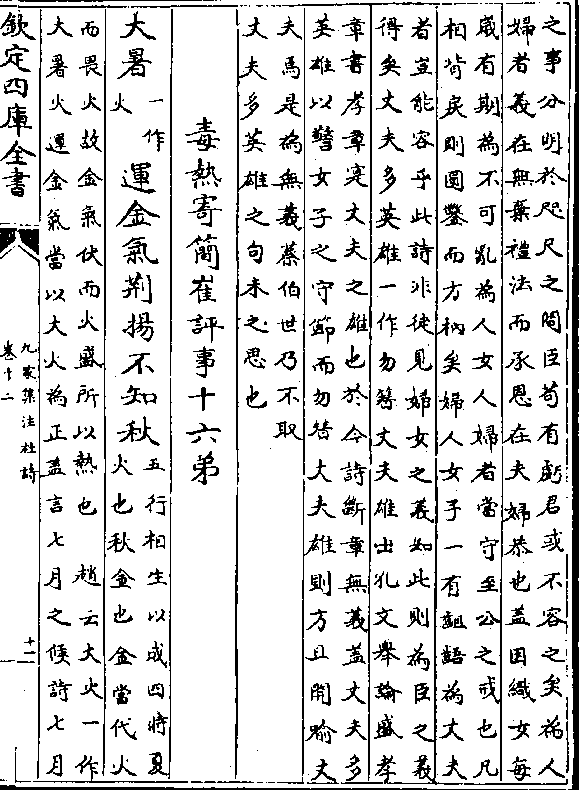 之事分明於咫尺之間臣苟有虧君或不容之矣為人
婦者義在無棄禮法而承恩在夫婦恭也蓋因織女每
歲有期為不可亂為人女人婦者當守至公之戒也凡
相背戾則圓鑿而方枘矣婦人女子一有齟齬為丈夫
者豈能容乎此詩非徒見婦女之義如此則為臣之義
得矣丈夫多英雄一作勿替丈夫雄出孔文舉論盛孝
章書孝章寔丈夫之雄也於今詩斷章無義蓋丈夫多
英雄以警女子之守節而勿替大夫雄則方且開喻丈
夫焉是為無義蔡伯世乃不取
丈夫多英雄之句未之思也
毒熱寄簡崔評事十六弟
大暑
一作
火
運金氣荆揚不知秋
五行相生以成四時夏
火也秋金也金當代火
而畏火故金氣伏而火盛所以熱也 趙云大火一作
大暑火運金氣當以大火為正蓋言七月之候詩七月
欽定四庫全書
九家集注杜詩
卷十二
十一